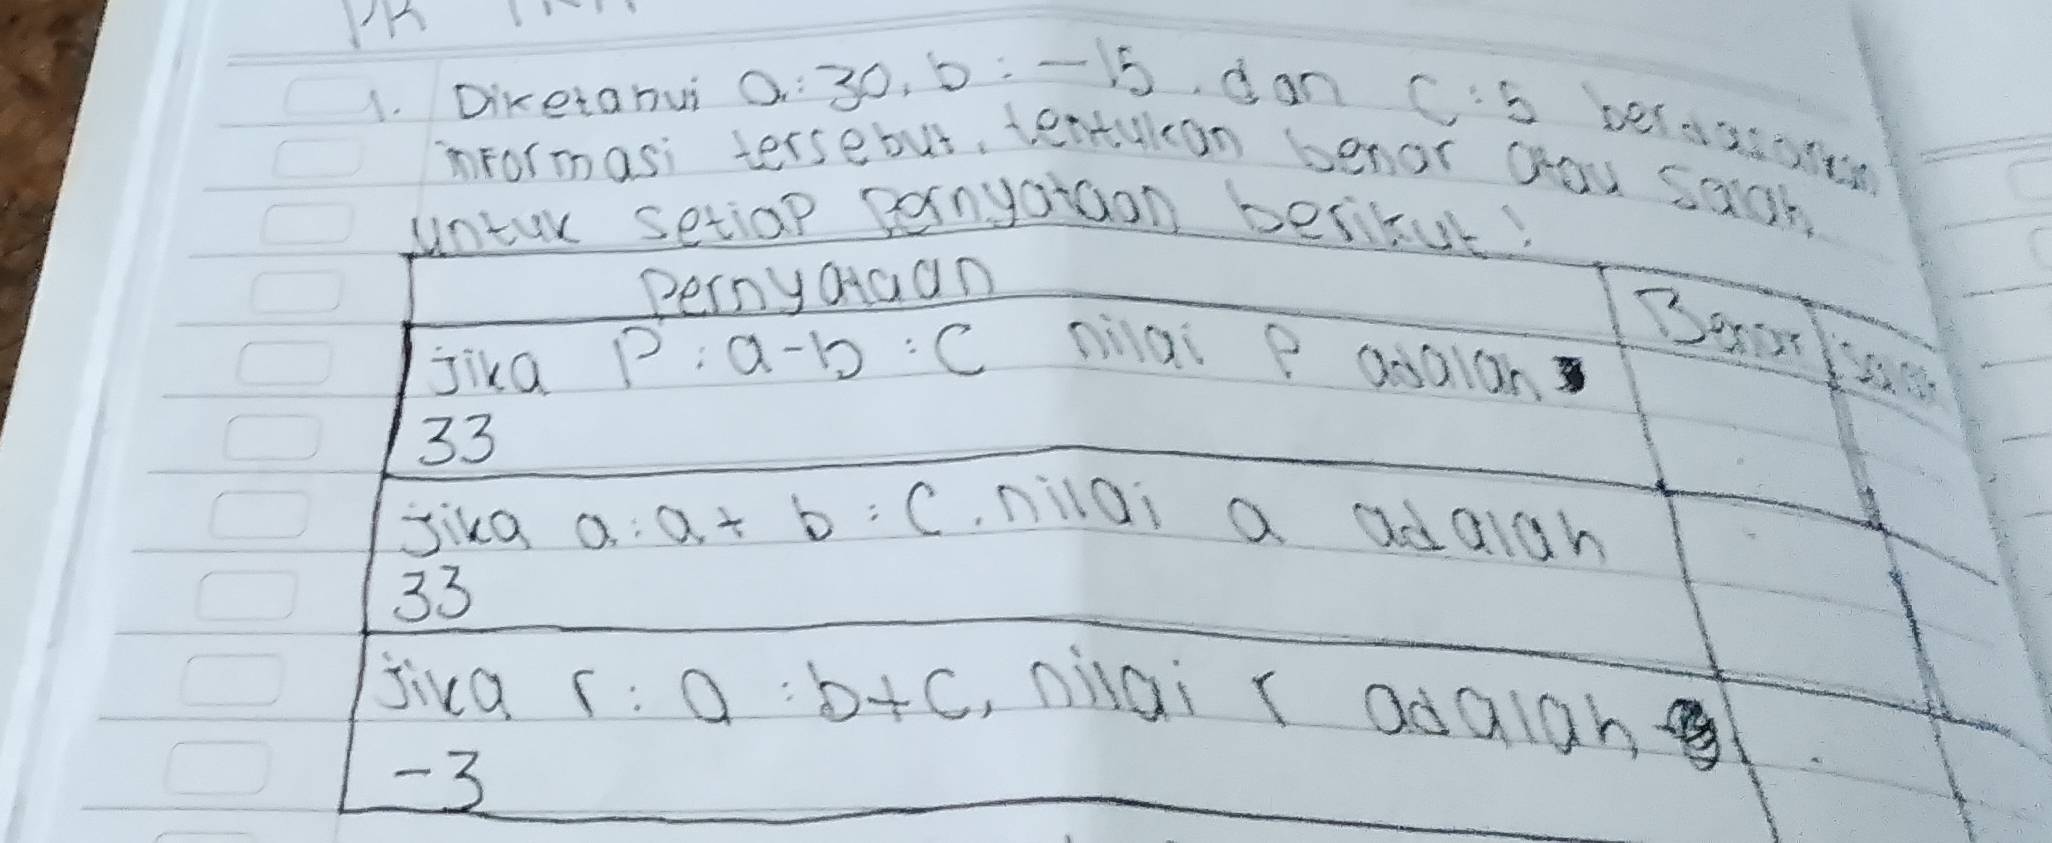 PR
1. Diketahui a : 30, b : -15, dan C : 5 berdasarkan
informasi tersebut, tentukan benar atau salah
untuk setiap pernyataan berikut!
Pernyataan Benar Salah
Jika P : a - b : C nilai P adalah
33
Jika a : a + b : C. nilai a adalah
33
Jika r : a : b + C, nilai r adalah
-3